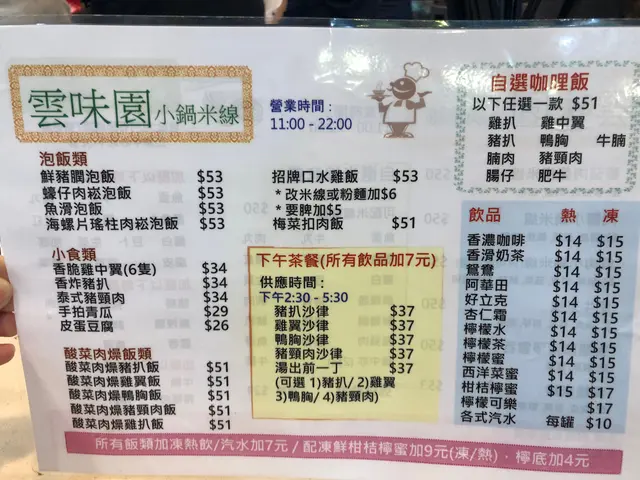 雲味園小鍋米線
營業時間:
11:00 - 22:00
泡飯類
鮮豬膶泡飯 $53
蠔仔肉崧泡飯 $53
魚滑泡飯 $53
海螺片瑤柱肉崧泡飯 $53
小食類
香脆雞中翼(6隻) $34
香炸豬扒 $34
泰式豬頸肉 $34
手拍青瓜 $29
皮蛋豆腐 $26
酸菜肉燥飯類
酸菜肉燥豬扒飯 $51
酸菜肉燥雞翼飯 $51
酸菜肉燥鴨胸飯 $51
酸菜肉燥豬頸肉飯 $51
酸菜肉燥雞扒飯 $51
招牌口水雞飯 $53
* 改米線或粉麵加$6
* 要脾加$5
梅菜扣肉飯 $51
下午茶餐(所有飲品加7元)
供應時間:
下午2:30 - 5:30
豬扒沙律 $37
雞翼沙律 $37
鴨胸沙律 $37
豬頸肉沙律 $37
湯出前一丁 $37
(可選 1)豬扒/ 2)雞翼
3)鴨胸/ 4)豬頸肉)
自選咖哩飯
以下任選一款 $51
雞扒 雞中翼
豬扒 鴨胸 牛腩
腩肉 豬頸肉
腸仔 肥牛
飲品 熱 凍
香濃咖啡 $14 $15
香滑奶茶 $14 $15
鴛鴦 $14 $15
阿華田 $14 $15
好立克 $14 $15
杏仁霜 $14 $15
檸檬水 $14 $15
檸檬茶 $14 $15
檸檬蜜 $14 $15
西洋菜蜜 $14 $15
柑桔檸蜜 $15 $17
檸檬可樂 $17
各式汽水 每罐 $10
所有飯類加凍熱飲/汽水加7元 / 配凍鮮柑桔檸蜜加9元(凍/熱)﹒檸底加4元